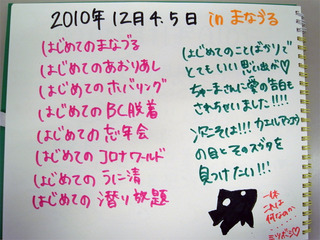 2010年 12月4.5日 in まなづる
はじめてのまなづる
はじめてのあおりあし
はじめてのホバリング
はじめてのBC脱着
はじめての忘年会
はじめてのコロナワールド
はじめてのうに清
はじめての潜り放題
はじめてのことばかりで
とてもいい思い出が♡
ちゅーまさんに愛の告白も
されちゃいました!!!!
次こそは!!!カエルアンコウ
の目とそのスガタを
見つけたい!!!
一体
これは
何なのか
ミツボシ♡